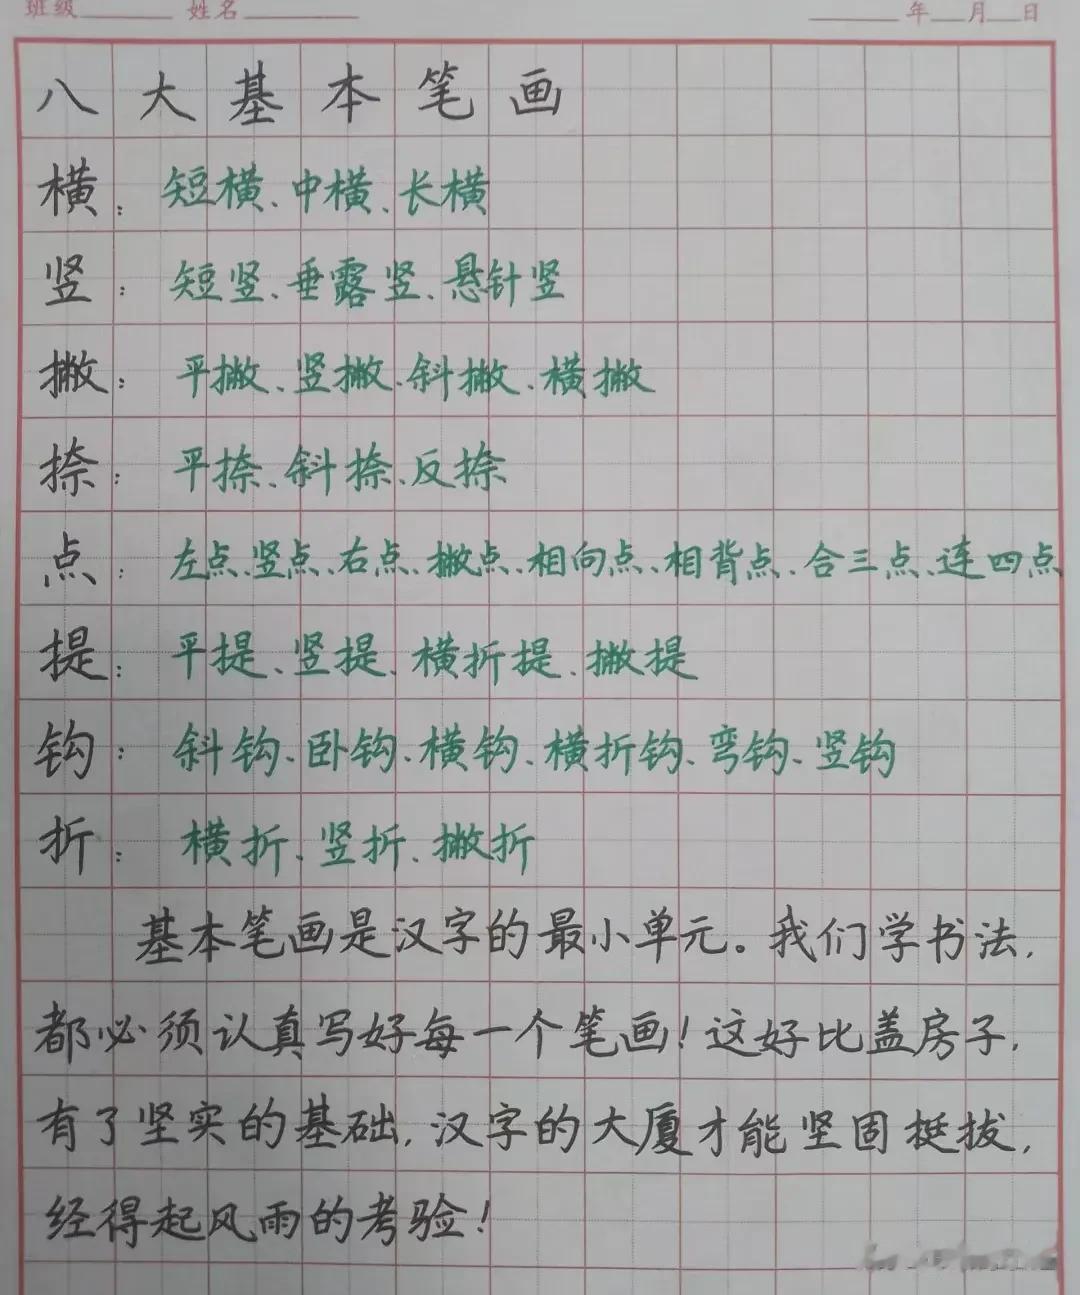 班级 姓名 年 月 日
八大基本笔画
横：短横、中横、长横
竖：短竖、垂露竖、悬针竖
撇：平撇、竖撇、斜撇、横撇
捺：平捺、斜捺、反捺
点：左点、竖点、右点、撇点、相向点、相背点、合三点、连四点
提：平提、竖提、横折提、撇提
钩：斜钩、卧钩、横钩、横折钩、弯钩、竖钩
折：横折、竖折、撇折
基本笔画是汉字的最小单元。我们学书法，
都必须认真写好每一个笔画！这好比盖房子，
有了坚实的基础，汉字的大厦才能坚固挺拔，
经得起风雨的考验！